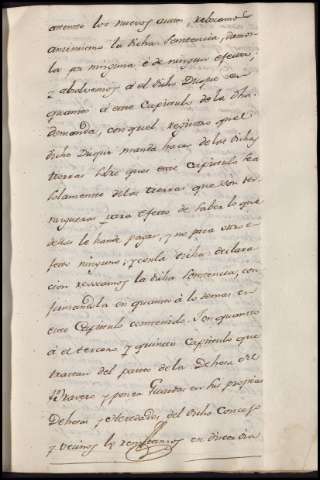 atento los nuevos autos, revocamos
asimismo la dicha Sentencia, damosla
por ninguna é de ningun efecto,
y absolvemos á el dicho Duque en
quanto á este Capitulo de la dha
demanda, con quel registro quel
dicho Duque manda hacer de las dichas
tierras libre que este capitulo sea
solamente de las tierras que son ter-
razgueras para efecto de saber lo que
dellas le han de pagar, y no para otro e-
fecto ninguno; y con la dicha declara-
cion revocamos la dicha Sentencia, con-
firmandola en quanto á lo demas en
este Capitulo contenido. Y en quanto
á el tercero y quinto Capitulo que
tratan del pasto de la Dehesa del
Pravero y poner Guardas en las propias
Dehesas y Heredades del dicho Concejo
y vecinos lo revocamos en